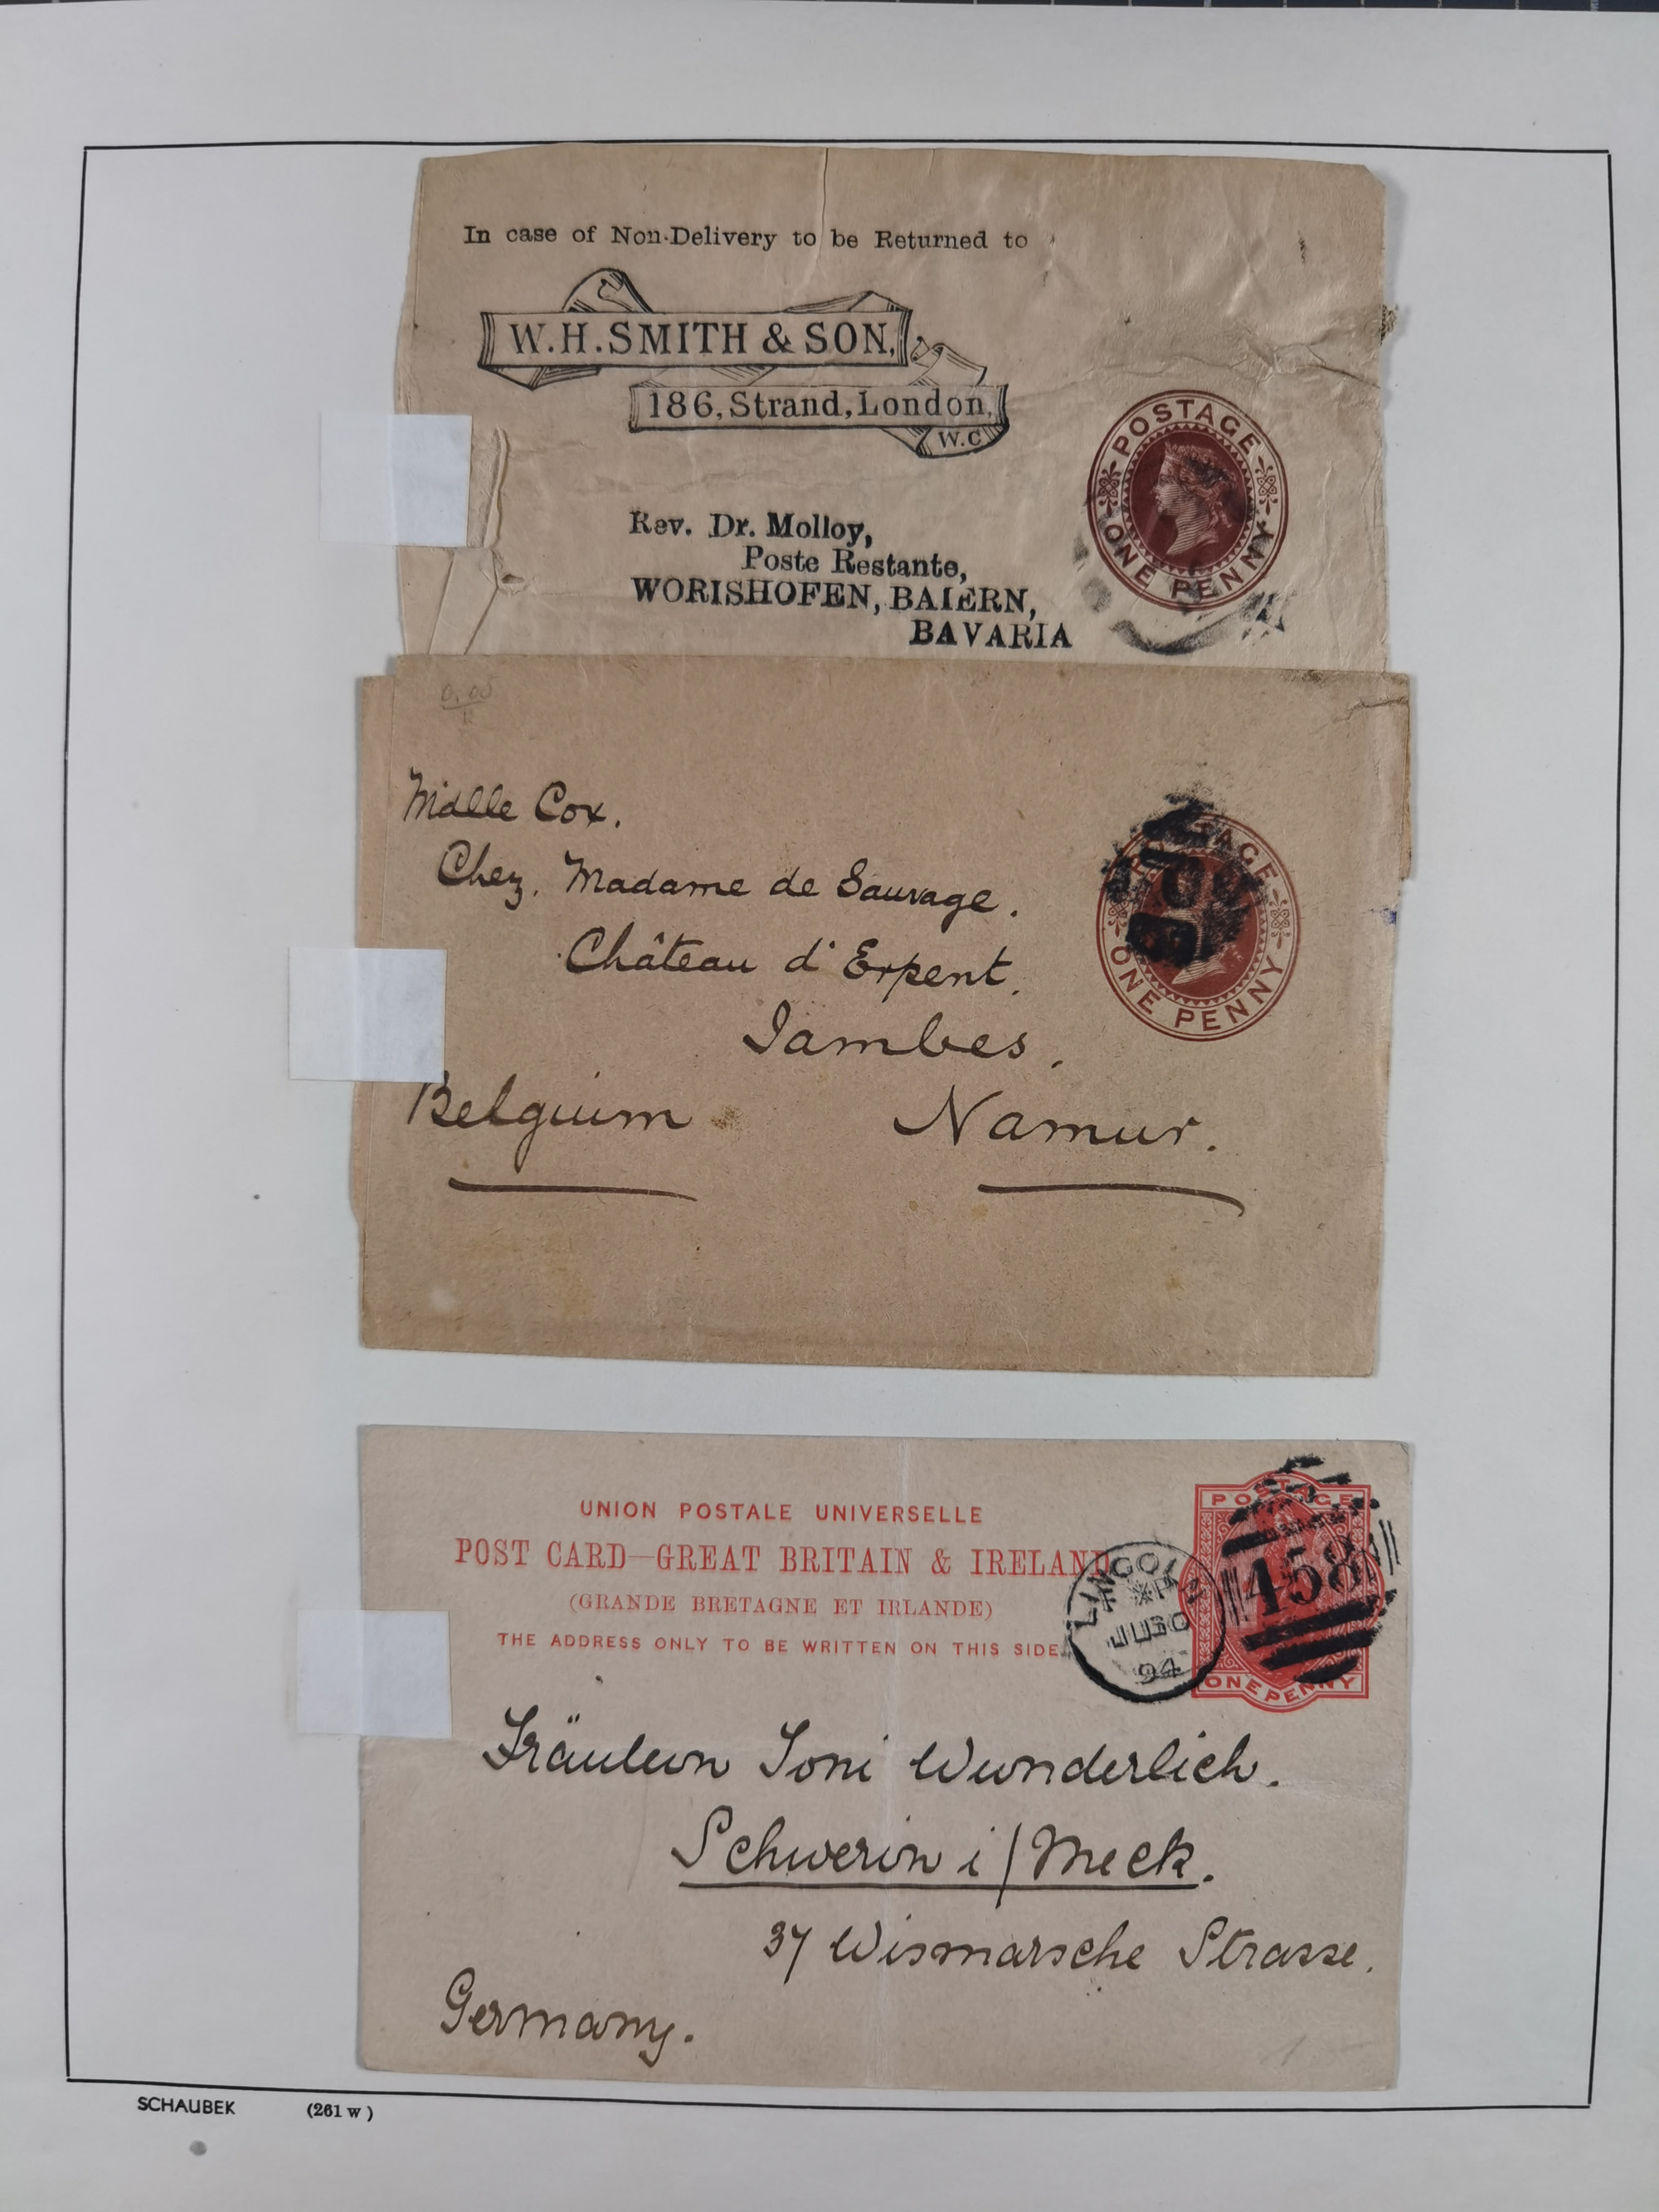 In case of Non-Delivery to be Returned to
W.H.SMITH & SON,
186, Strand, London,
W.C
POSTAGE
ONE PENNY
Rev. Dr. Molloy,
Poste Restante,
WORISHOFEN, BAIERN,
BAVARIA
0,05
Mdlle Cox.
Chez. Madame de Sauvage.
Château d'Erpent.
Jambes.
Belguim Namur.
POSTAGE
ONE PENNY
UNION POSTALE UNIVERSELLE
POST CARD—GREAT BRITAIN & IRELAND
(GRANDE BRETAGNE ET IRLANDE)
THE ADDRESS ONLY TO BE WRITTEN ON THIS SIDE.
POSTAGE
ONE PENNY
LINCOLN
94
458
Fräulein Toni Wunderlich.
Schwerin i/Meck.
37 Wismarsche Strasse.
Germany.
SCHAUBEK (261 w)